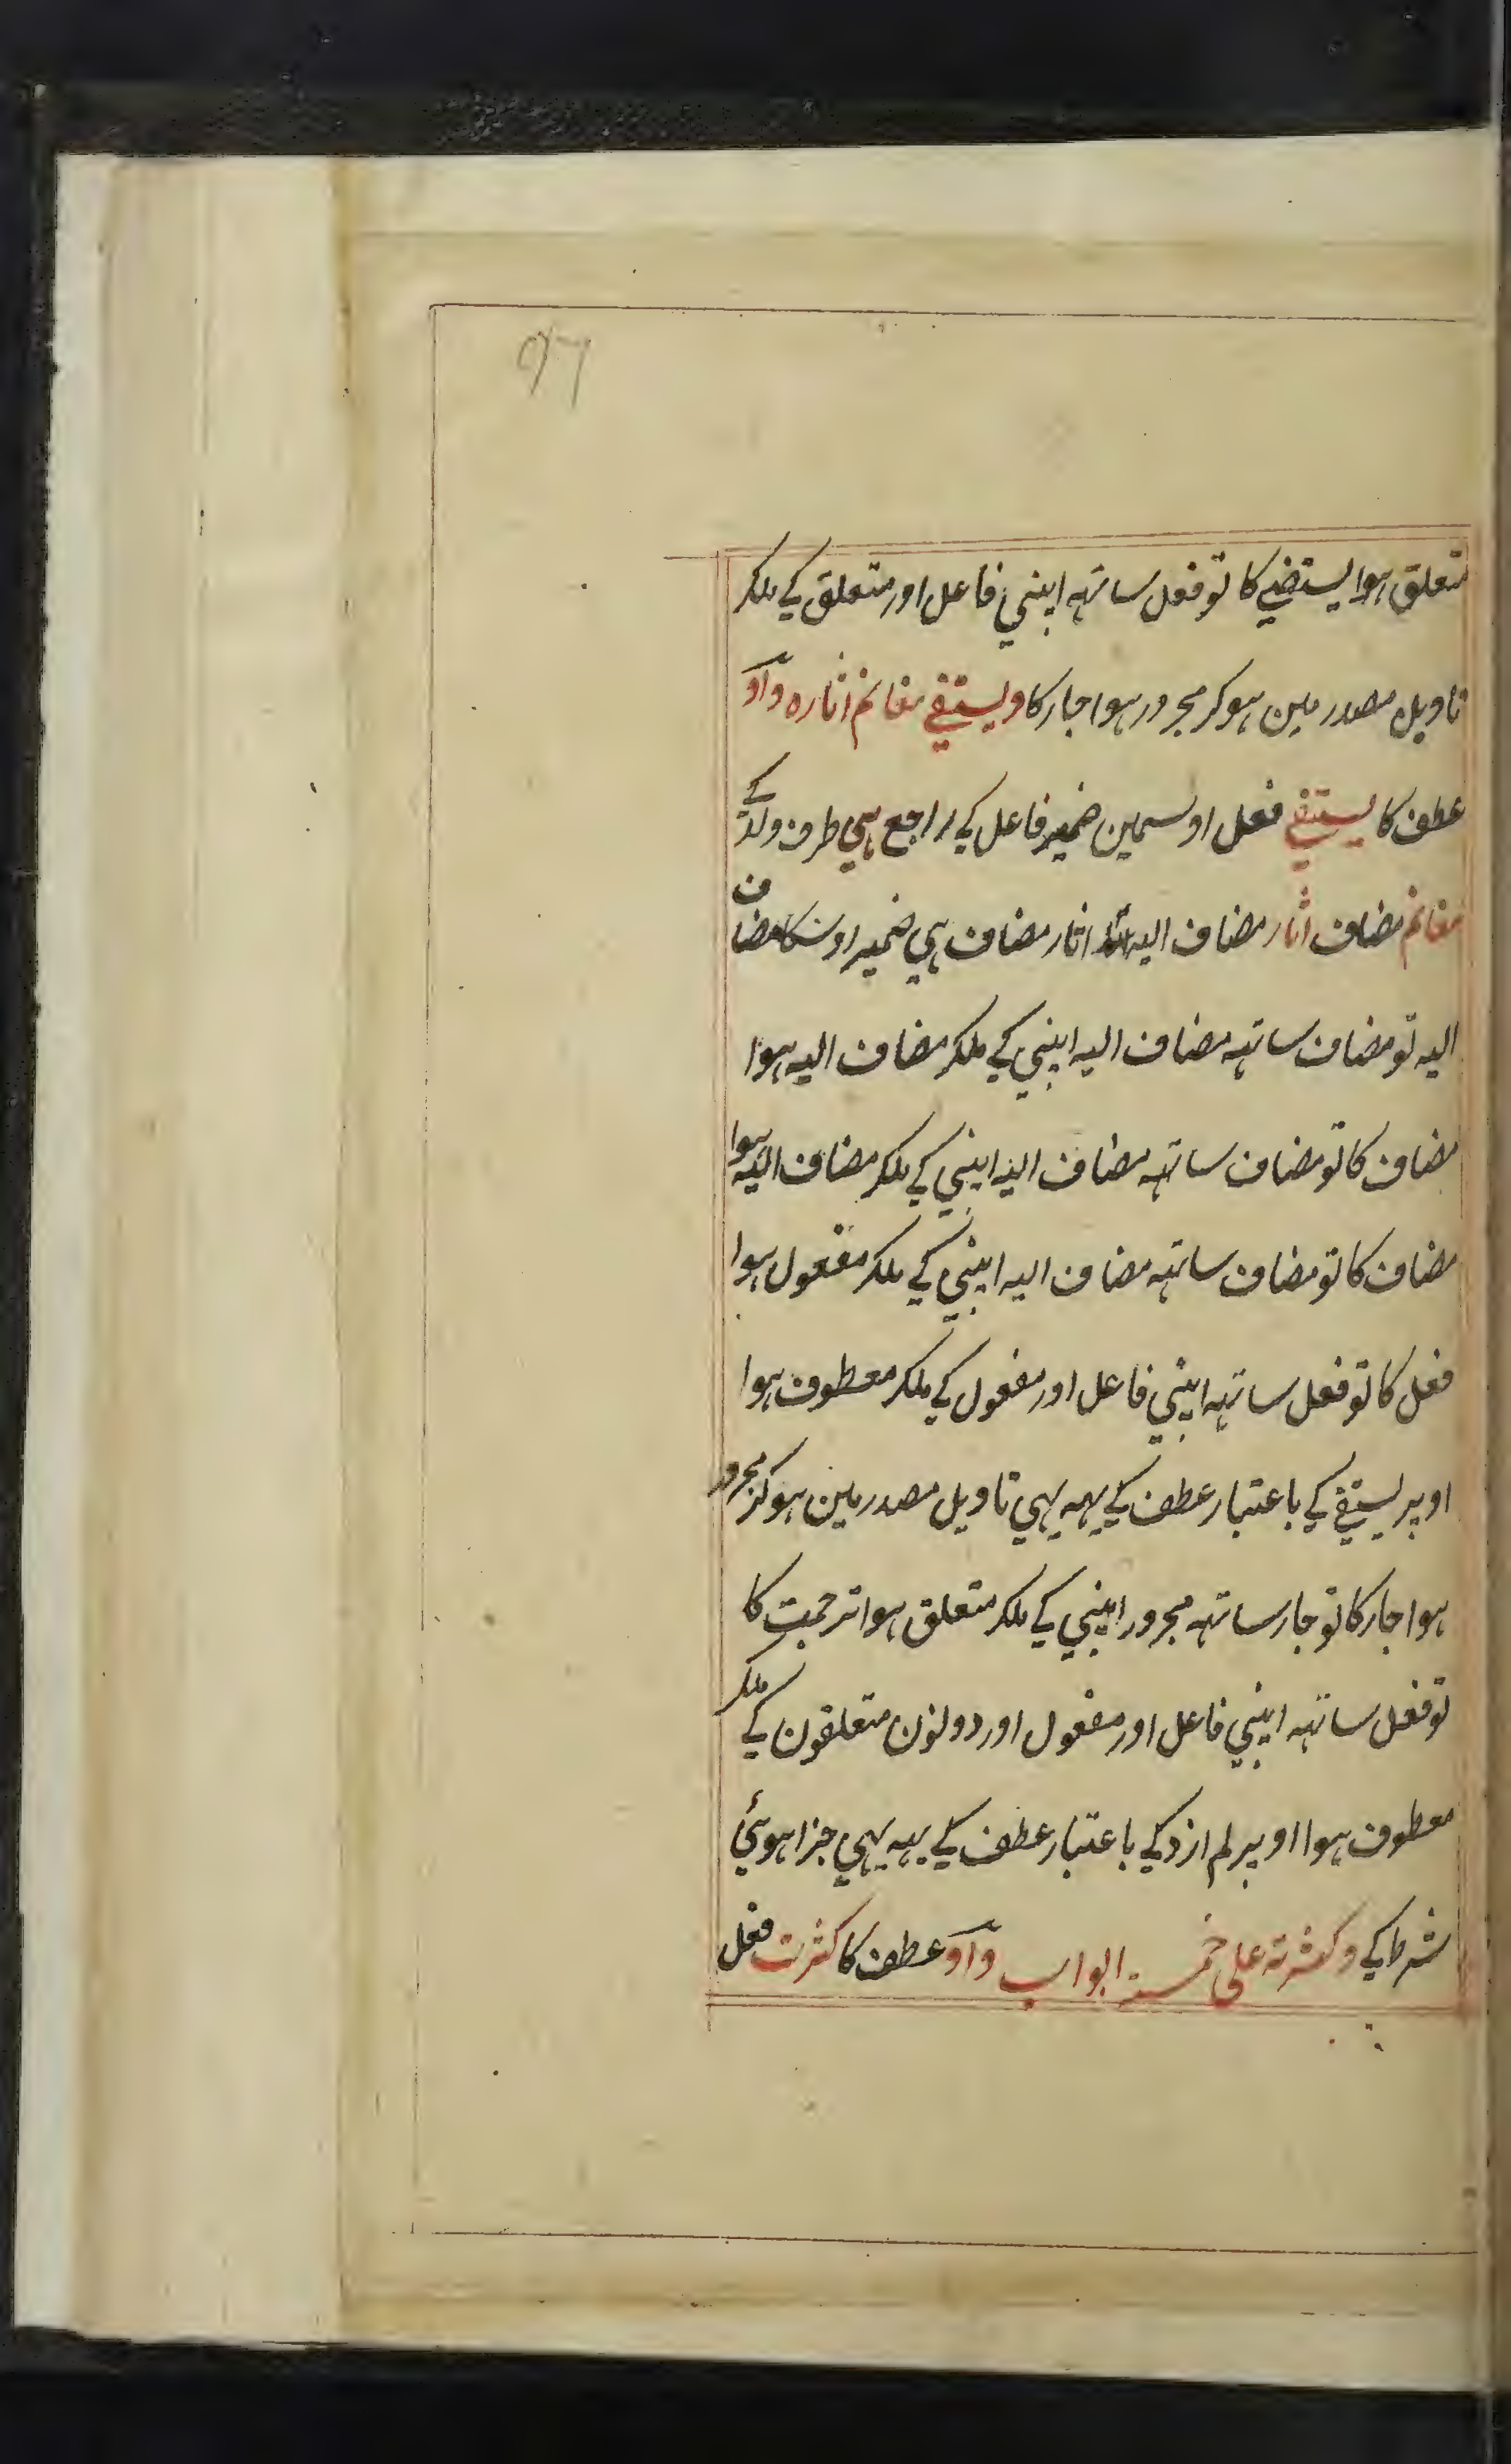 ۹۶
متعلق ہوا یستضے کا تو فعل ساتہہ اپنی فاعل اور متعلق کے ملکر
تاویل مصدر مین ہوکر مجرور ہوا جار کا ویستقے مغانم اثاره واو
عطف کا یستقے فعل اوسمین ضمیر فاعل کے راجع ہی طرف ولد کے
مغانم مضاف اثار مضاف الیہ اثار مضاف ہی ضمیر اوسکا مضاف
الیہ تو مضاف ساتہہ مضاف الیہ اپنی کے ملکر مضاف الیہ ہوا
مضاف کا تو مضاف ساتہہ مضاف الیہ اپنی کے ملکر مضاف الیہ ہوا
مضاف کا تو مضاف ساتہہ مضاف الیہ اپنی کے ملکر مفعول ہوا
فعل کا تو فعل ساتہہ اپنی فاعل اور مفعول کے ملکر معطوف ہوا
اوپر یستقے کے باعتبار عطف کے یہہ بہی تاویل مصدر مین ہوکر مجرور
ہوا جار کا تو جار ساتہہ مجرور اپنی کے ملکر متعلق ہوا ترجمت کا
تو فعل ساتہہ اپنی فاعل اور مفعول اور دولون متعلقون کے ملکر
معطوف ہوا اوپر لم ازد کے باعتبار عطف کے یہہ بہی جزا ہوئی
شرط کے وکثرته علی خمسة ابواب واو عطف کا کثرت فعل